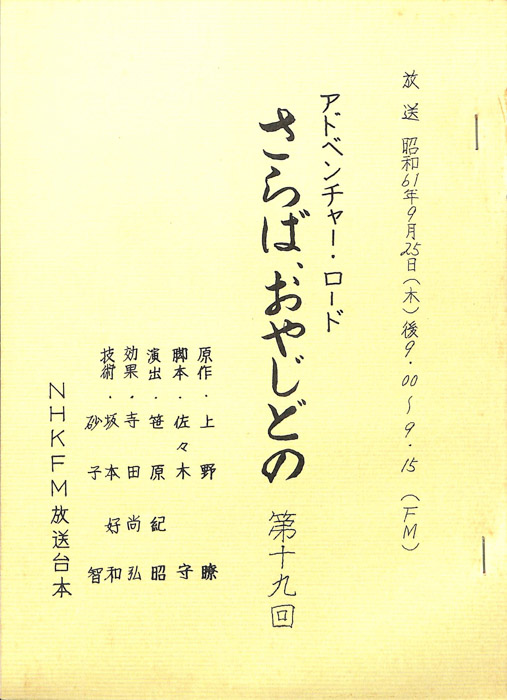 放送 昭和61年9月25日(木)後9.00〜9.15 (FM)
アドベンチャー・ロード
さらば、おやじどの 第十九回
原作・上野 瞭
脚本・佐々木 守
演出・笹原紀昭
効果・寺田尚弘
技術・坂本好和
砂子 智
NHKFM放送台本